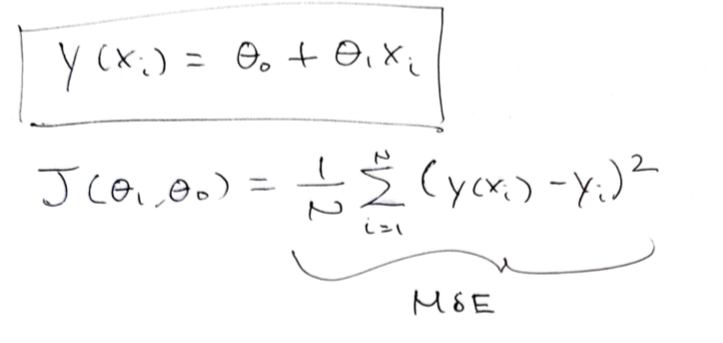 y(xᵢ) = θ₀ + θ₁xᵢ
J(θ₁,θ₀) = 1/N Σᵢ₌₁ᴺ (y(xᵢ) - yᵢ)²
MSE